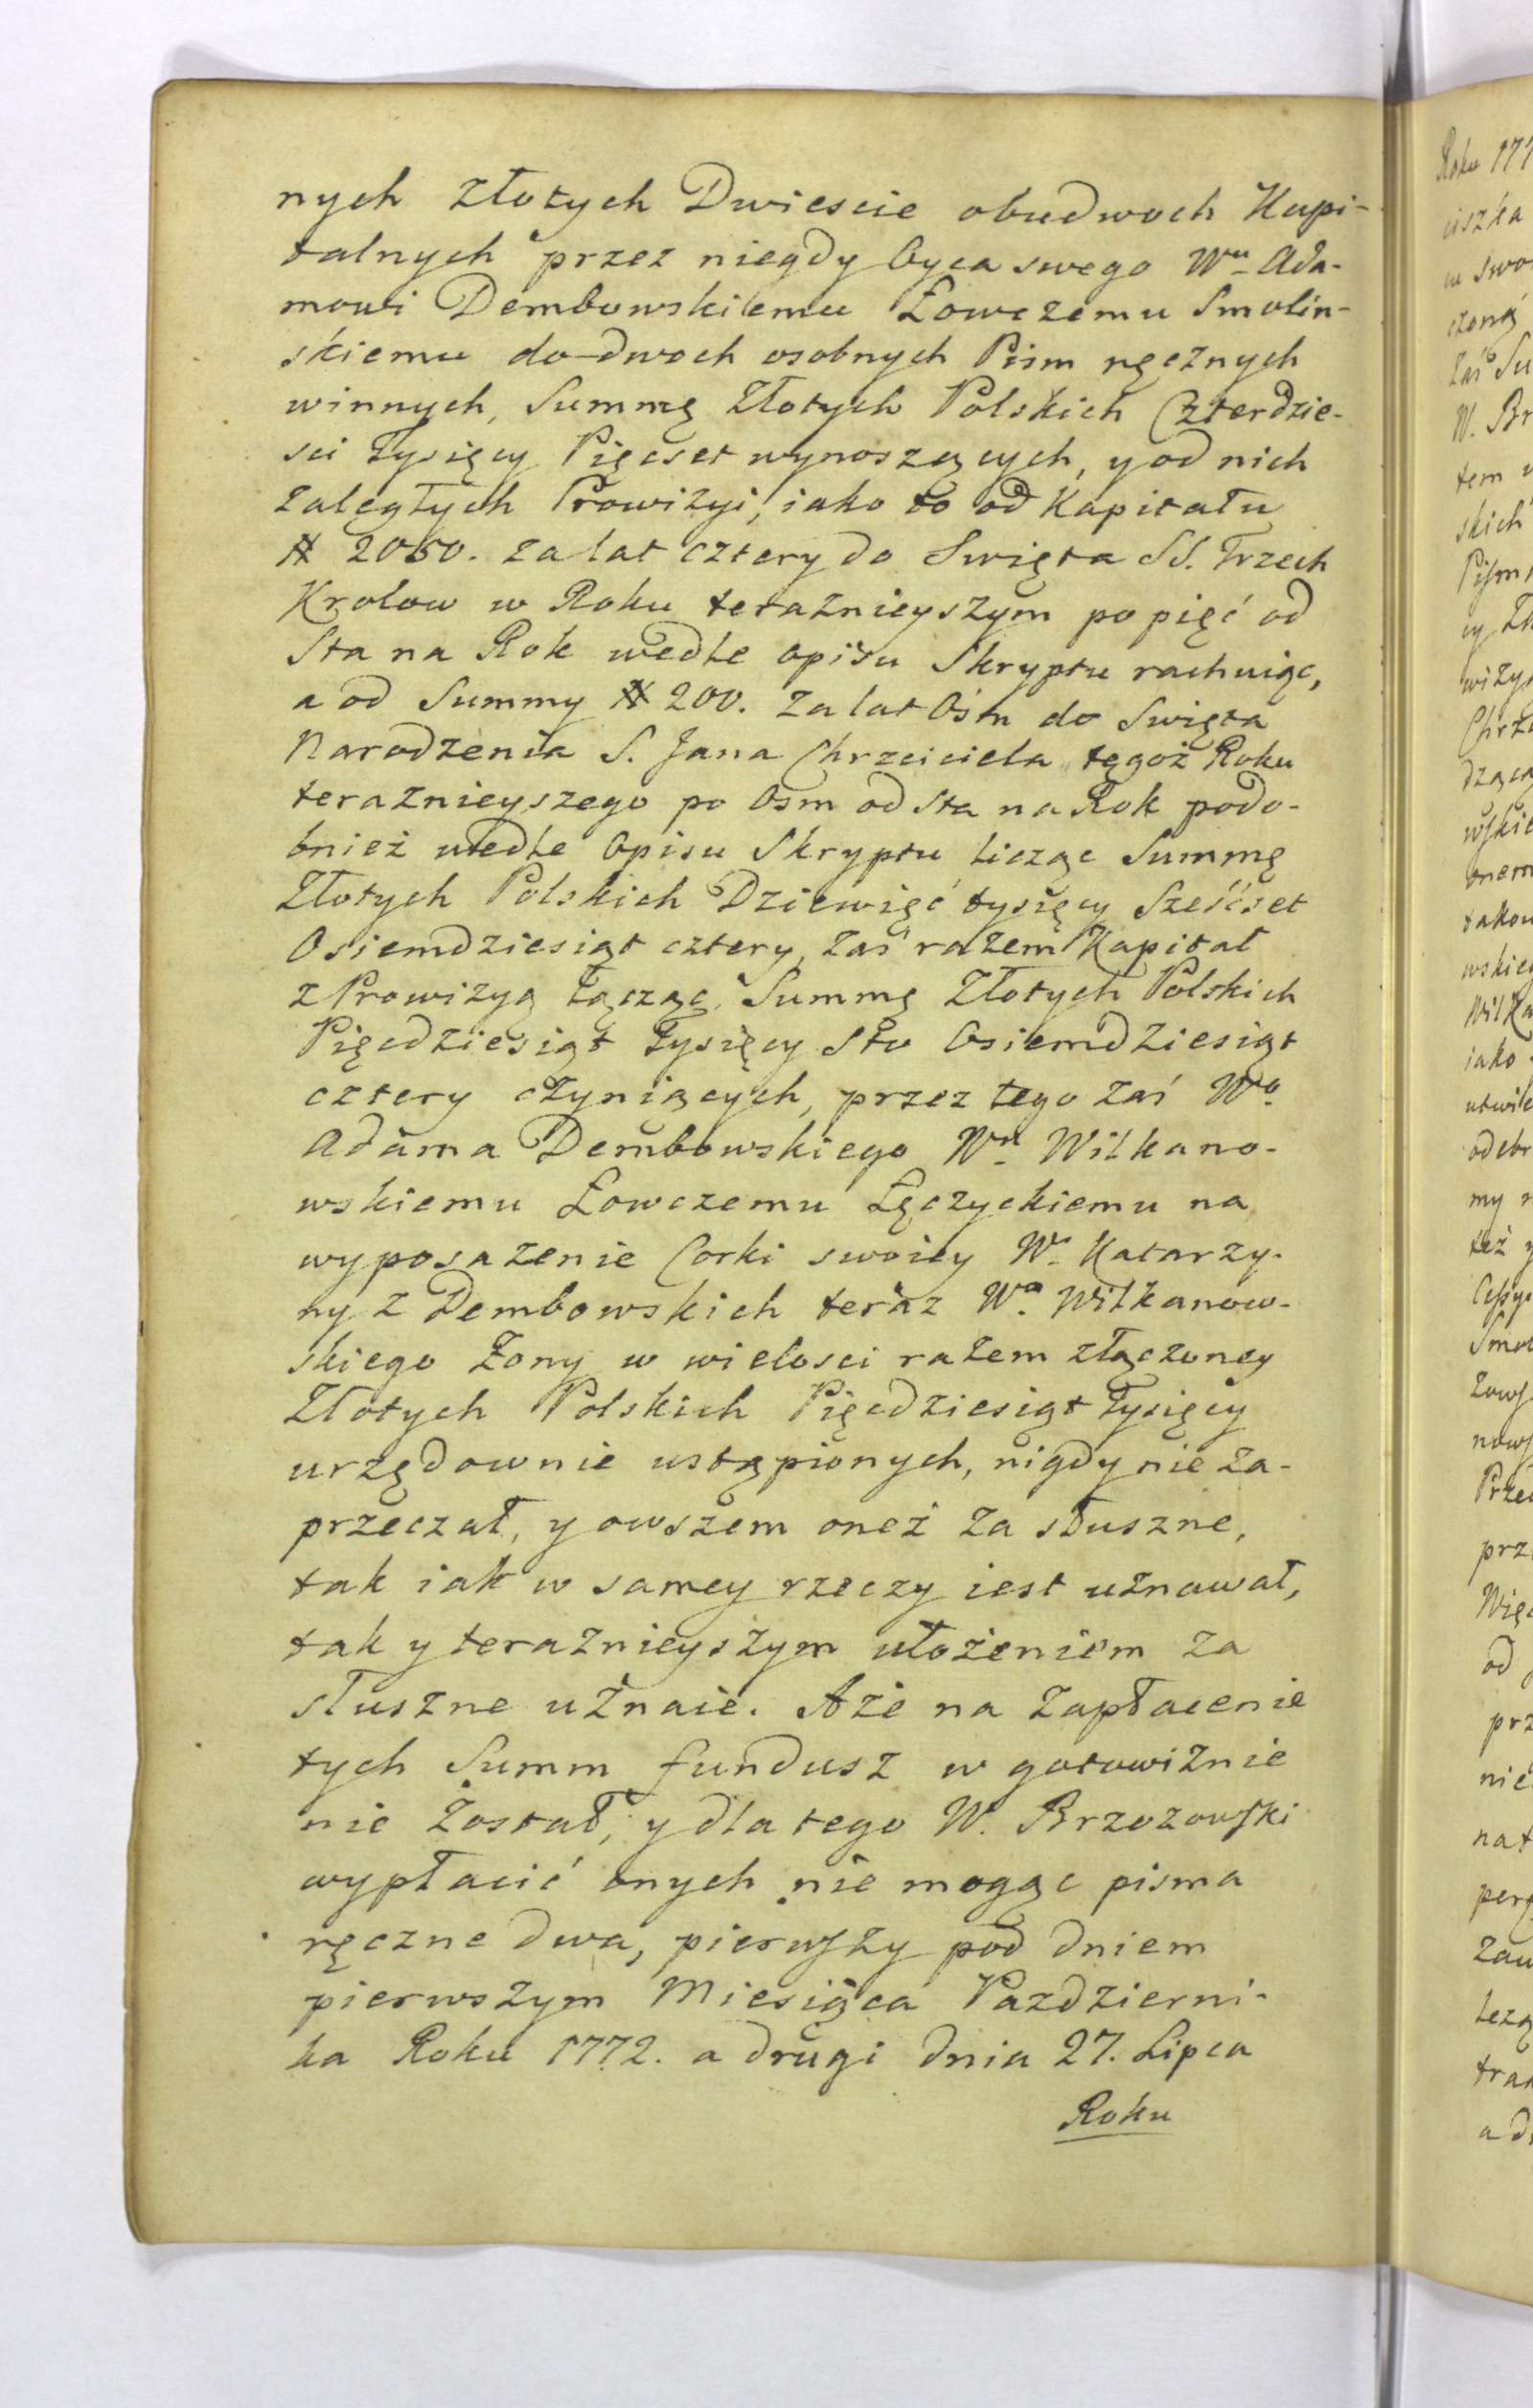 nych złotych Dwiescie obudwoch Kapi-
talnych przez niegdy Oyca swego Wu Ada-
mowi Dembowskiemu Łowczemu Smolin-
skiemu do dwoch osobnych Pism ręcznych
winnych, Summę Złotych Polskich Czterdzie-
sci Tysięcy Pięcset wynoszących, y od nich
zaległych Prowizyi, iako to od Kapitału
# 2050. za lat cztery do Swięta SS. Trzech
Krolow w Roku teraznieyszym po pięć od
Sta na Rok wedle opisu Skryptu rachuiąc,
a od Summy # 200. za lat Ośm do Swięta
Narodzenia S. Jana Chrzciciela tegoż Roku
teraznieyszego po Osm od sta na Rok podo-
bnież wedle Opisu Skryptu licząc Summę
Złotych Polskich Dziewięć tysięcy Sześćset
Osiemdziesiąt cztery, zaś razem Kapitał
z Prowizyą łącząc Summę Złotych Polskich
Pięcdziesiąt Tysięcy Sto Osiemdziesiąt
cztery czyniących, przez tego zaś Wo
Adama Dembowskiego Wu Wilkano-
wskiemu Łowczemu Łęczyckiemu na
wyposazenie Corki swoiey W. Katarzy-
ny z Dembowskich teraz Wo Wilkanow-
skiego Żony w wielosci razem złączoney
Złotych Polskich Pięcdziesiąt Tysięcy
urzędownie ustąpionych, nigdy nie za-
przeczał, y owszem oneż za słuszne,
tak iak w samey rzeczy iest uznawał,
tak y teraznieyszym ułożeniem za
słuszne uznaie. Aże na zapłacenie
tych Summ fundusz w gotowiznie
nie został, y dla tego W. Brzozowski
wypłacić onych nie mogąc pisma
ręczne dwa, pierwszy pod dniem
pierwszym Miesiąca Pazdzierni-
ka Roku 1772. a drugi dnia 27. Lipca
Roku